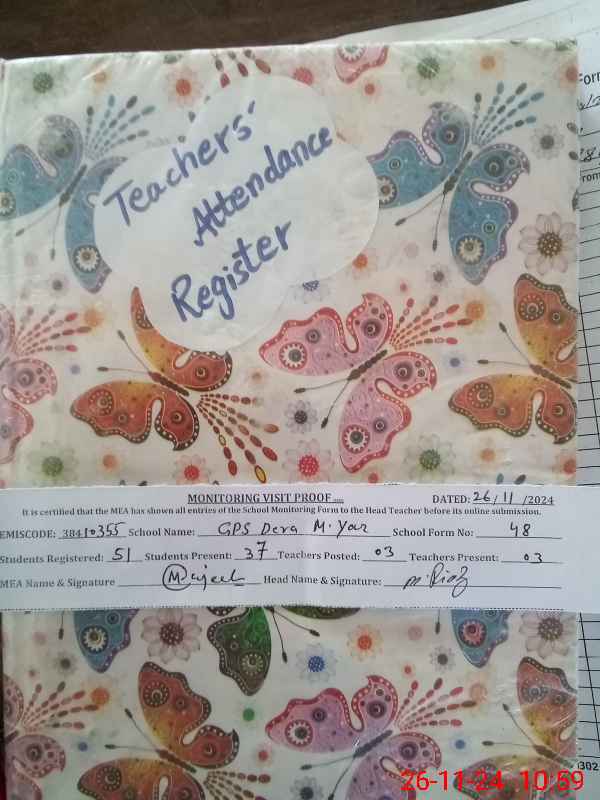 Teachers'
Attendance
Register
MONITORING VISIT PROOF .... DATED: 26/11/2024
It is certified that the MEA has shown all entries of the School Monitoring Form to the Head Teacher before its online submission.
EMISCODE: 38410355 School Name: GPS Dera M. Yar School Form No: 48
Students Registered: 51 Students Present: 37 Teachers Posted: 03 Teachers Present: 03
MEA Name & Signature Head Name & Signature: M. Riaz
26-11-24 10:59